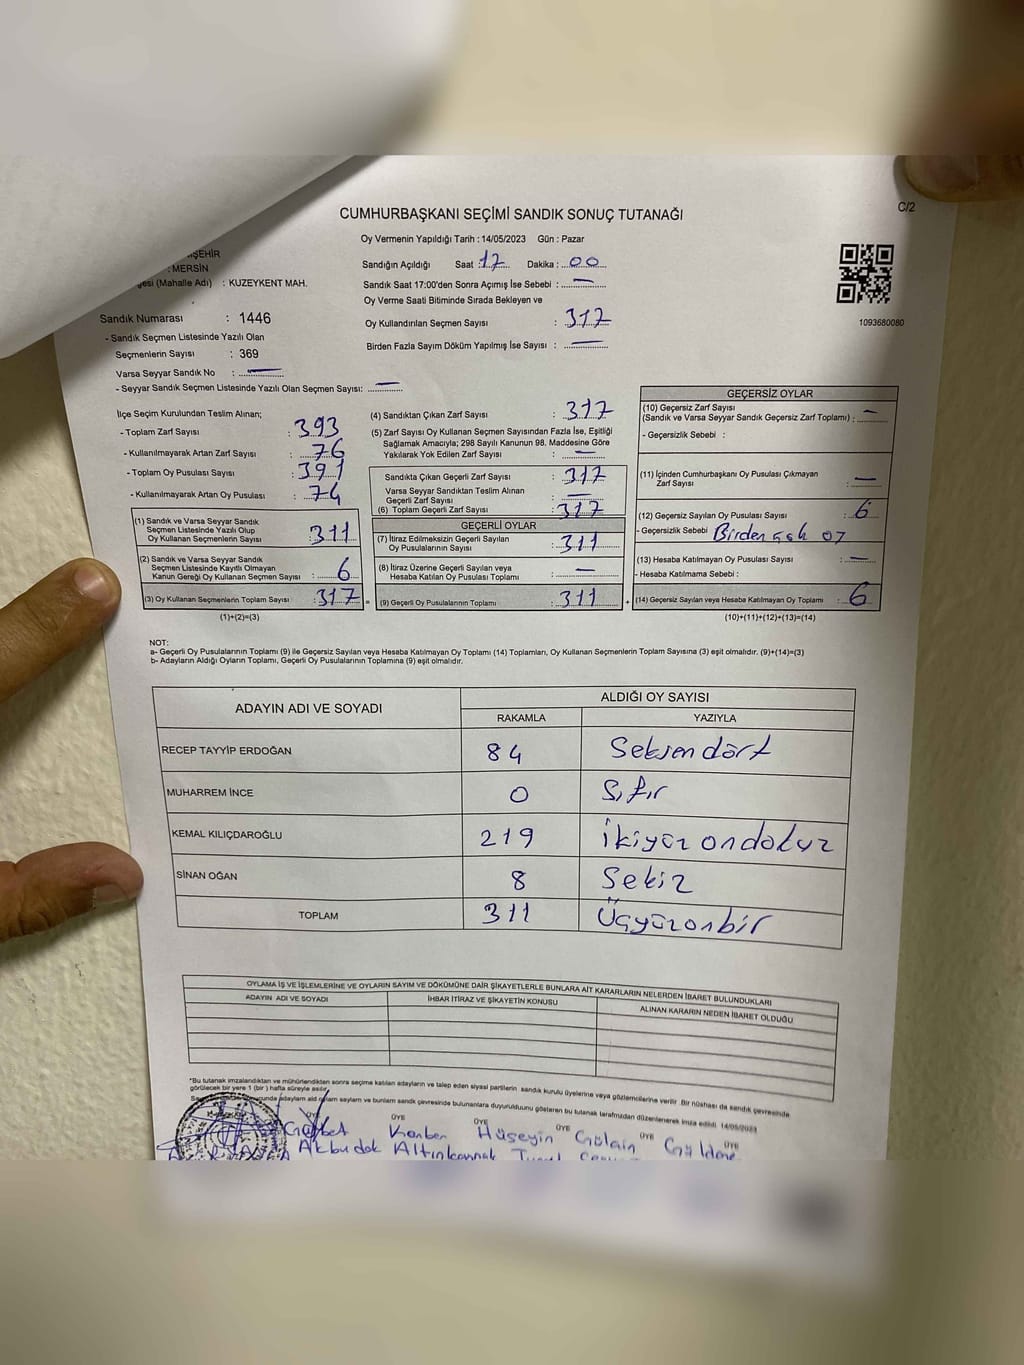 C/2
CUMHURBAŞKANI SEÇİMİ SANDIK SONUÇ TUTANAĞI
Oy Vermenin Yapıldığı Tarih : 14/05/2023 Gün : Pazar
Sandığın Açıldığı Saat : 17 Dakika : 00
Sandık Saat 17:00'den Sonra Açımış İse Sebebi : —
Oy Verme Saati Bitiminde Sırada Bekleyen ve
Oy Kullandırılan Seçmen Sayısı : 317
Birden Fazla Sayım Döküm Yapılmış İse Sayısı : —
1093680080
: MERSİN
(Mahalle Adı) : KUZEYKENT MAH.
Sandık Numarası : 1446
- Sandık Seçmen Listesinde Yazılı Olan
Seçmenlerin Sayısı : 369
Varsa Seyyar Sandık No : —
- Seyyar Sandık Seçmen Listesinde Yazılı Olan Seçmen Sayısı: —
İlçe Seçim Kurulundan Teslim Alınan;
- Toplam Zarf Sayısı : 393
- Kullanılmayarak Artan Zarf Sayısı : 76
- Toplam Oy Pusulası Sayısı : 391
- Kullanılmayarak Artan Oy Pusulası : 74
(1) Sandık ve Varsa Seyyar Sandık
Seçmen Listesinde Yazılı Olup
Oy Kullanan Seçmenlerin Sayısı : 311
(2) Sandık ve Varsa Seyyar Sandık
Seçmen Listesinde Kayıtlı Olmayan
Kanun Gereği Oy Kullanan Seçmen Sayısı : 6
(3) Oy Kullanan Seçmenlerin Toplam Sayısı : 317 =
(1)+(2)=(3)
(4) Sandıktan Çıkan Zarf Sayısı : 317
(5) Zarf Sayısı Oy Kullanan Seçmen Sayısından Fazla İse, Eşitliği
Sağlamak Amacıyla; 298 Sayılı Kanunun 98. Maddesine Göre
Yakılarak Yok Edilen Zarf Sayısı : —
Sandıkta Çıkan Geçerli Zarf Sayısı : 317
Varsa Seyyar Sandıktan Teslim Alınan
Geçerli Zarf Sayısı : —
(6) Toplam Geçerli Zarf Sayısı : 317
GEÇERLİ OYLAR
(7) İtiraz Edilmeksizin Geçerli Sayılan
Oy Pusulalarının Sayısı : 311
(8) İtiraz Üzerine Geçerli Sayılan veya
Hesaba Katılan Oy Pusulası Toplamı : —
(9) Geçerli Oy Pusulalarının Toplamı : 311 +
GEÇERSİZ OYLAR
(10) Geçersiz Zarf Sayısı
(Sandık ve Varsa Seyyar Sandık Geçersiz Zarf Toplamı) : —
- Geçersizlik Sebebi :
(11) İçinden Cumhurbaşkanı Oy Pusulası Çıkmayan
Zarf Sayısı : —
(12) Geçersiz Sayılan Oy Pusulası Sayısı : 6
- Geçersizlik Sebebi Birden çok oy
(13) Hesaba Katılmayan Oy Pusulası Sayısı : —
- Hesaba Katılmama Sebebi :
(14) Geçersiz Sayılan veya Hesaba Katılmayan Oy Toplamı : 6
(10)+(11)+(12)+(13)=(14)
NOT:
a- Geçerli Oy Pusulalarının Toplamı (9) ile Geçersiz Sayılan veya Hesaba Katılmayan Oy Toplamı (14) Toplamları, Oy Kullanan Seçmenlerin Toplam Sayısına (3) eşit olmalıdır. (9)+(14)=(3)
b- Adayların Aldığı Oyların Toplamı, Geçerli Oy Pusulalarının Toplamına (9) eşit olmalıdır.
ADAYIN ADI VE SOYADI ALDIĞI OY SAYISI
RAKAMLA YAZIYLA
RECEP TAYYİP ERDOĞAN 84 Seksendört
MUHARREM İNCE 0 Sıfır
KEMAL KILIÇDAROĞLU 219 İkiyüz ondokuz
SİNAN OĞAN 8 Sekiz
TOPLAM 311 Üçyüzonbir
OYLAMA İŞ VE İŞLEMLERİNE VE OYLARIN SAYIM VE DÖKÜMÜNE DAİR ŞİKAYETLERLE BUNLARA AİT KARARLARIN NELERDEN İBARET BULUNDUKLARI
ADAYIN ADI VE SOYADI İHBAR İTİRAZ VE ŞİKAYETİN KONUSU ALINAN KARARIN NEDEN İBARET OLDUĞU
*Bu tutanak imzalandıktan ve mühürlendikten sonra seçime katılan adayların ve talep eden siyasi partilerin sandık kurulu üyelerine veya gözlemcilerine verilir. Bir nüshası da sandık çevresinde
görülecek bir yere 1 (bir) hafta süreyle asılır.
bu tutanak tarafımızdan düzenlenerek imza edildi. 14/05/2023
ÜYE ÜYE ÜYE ÜYE ÜYE ÜYE
Kanber Hüseyin Gülain
Akbudak Altınkaynak